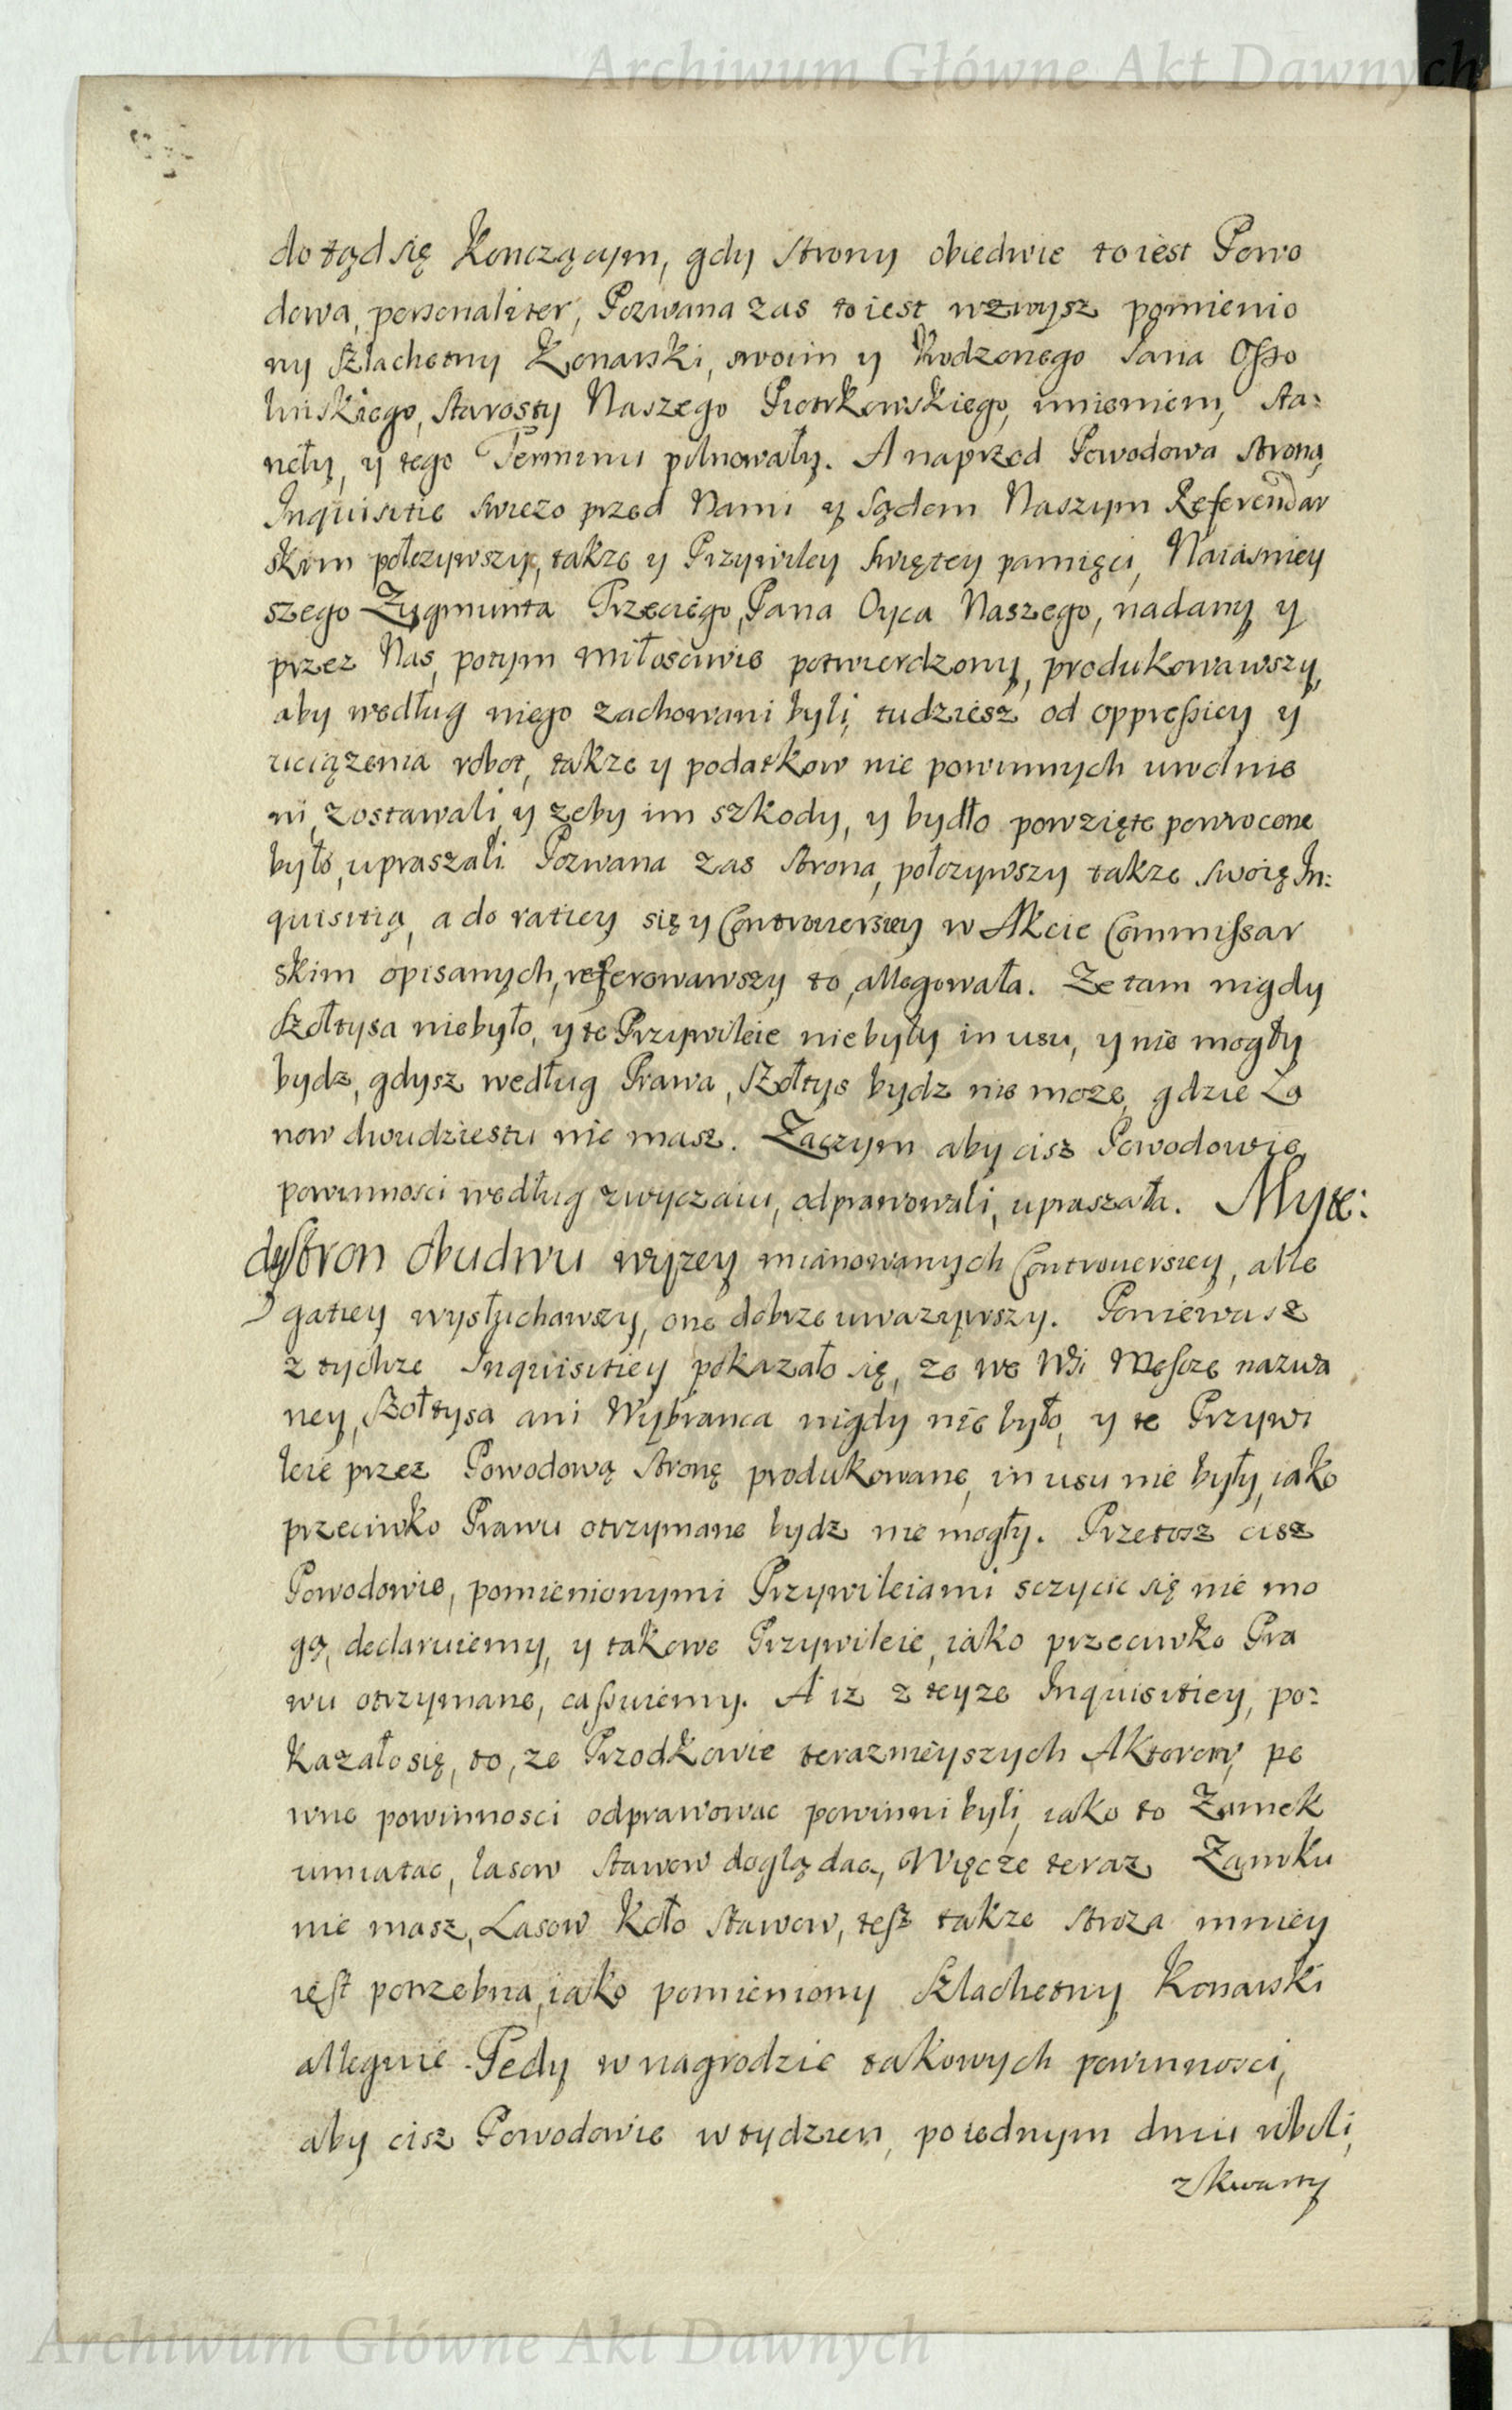 Archiwum Główne Akt Dawnych
do tąd się Kończącym, gdy Strony obiedwie to iest Powo
dowa, personaliter, Pozwana zas to iest wzwysz pomienio
ny Szlachetny Konarski, swoim y Urodzonego Jana Osso
linskiego, Starosty Naszego Piotrkowskiego, imieniem, sta:
neły, y tego Terminu pilnowały. A naprzod Powodowa strona,
Inquisitie swiezo przed Nami y Sądem Naszym Referendar
skim połozywszy, takze y Przywiley Swiętey pamięci, Naiasniey
szego Zygmunta Trzeciego, Pana Oyca Naszego, nadany y
przez Nas, potym miłosciwie potwierdzony, produkowawszy,
aby według niego zachowani byli, tudziesz od oppressiey y
uciązenia robot, takze y podatkow nie powinnych uwolnie
ni zostawali, y zeby im szkody, y bydło powzięte powrocone
było, upraszali. Pozwana zas strona, połozywszy takze swoię In:
quisitią, a do ratiey się y Controuersiey w Akcie Commissar
skim opisanych, referowawszy to, allegowała. Ze tam nigdy
Szołtysa niebyło, y te Przywileie niebyły in usu, y nie mogły
bydz, gdysz według Prawa, Szołtys bydz nie moze, gdzie Ła
now dwudziestu nie masz. Zaczym aby cisz Powodowie,
powinnosci według zwyczaiu, odprawowali, upraszała. My te:
dy stron obudwu wyzey mianowanych Controuersiey, alle
gatiey wysłuchawszy, one dobrze uwazywszy. Poniewasz
z tychze Inquisitiey pokazało się, ze we Wsi Mescze nazwa
ney, Szołtysa ani Wybranca nigdy nie było, y te Przywi
leie przez Powodową stronę produkowane, in usu nie były, iako
przeciwko Prawu otrzymane bydz nie mogły. Przetosz cisz
Powodowie, pomienionymi Przywileiami sczycic się nie mo
gą, declaruiemy, y takowe Przywileie, iako przeciwko Pra
wu otrzymane, cassuiemy. A iz z teyze Inquisitiey, po:
kazało się, to, ze Przodkowie terazneyszych Aktorow, pe
wne powinnosci odprawowac powinni byli, iako to Zamek
umiatac, lasow stawow doglądac, Więc ze teraz Zamku
nie masz, Lasow koło stawow, tesz takze stroza mniey
iest potrzebna, iako pomieniony Szlachetny Konarski
alleguie. Tedy w nagrodzie takowych powinnosci,
aby cisz Powodowie w tydzien, po iednym dniu robili,
z kwarty
Archiwum Główne Akt Dawnych